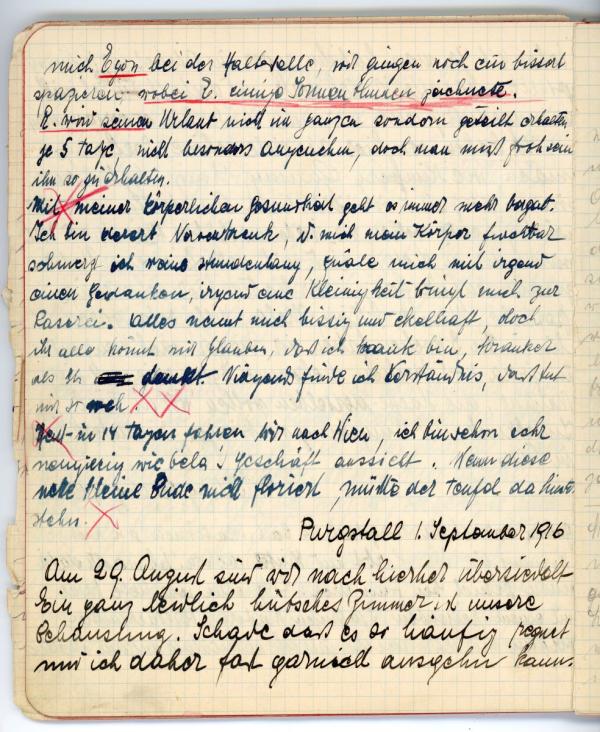 mich Egon bei der Haltestelle, wir gingen noch ein bisserl
spazieren wobei E. einige Sonnenblumen zeichnete.
E. wird seinen Urlaub nicht im ganzen sondern geteilt erhalten,
je 5 Tage, nicht besonders angenehm, doch man muß froh sein
ihn so zu erhalten.
Mit meiner körperlichen Gesundheit geht es immer mehr bergab.
Ich bin derart Nervenkrank, d. mich mein Körper furchtbar
schmerzt ich weine stundenlang, quäle mich mit irgend
einen Gedanken, irgend eine Kleinigkeit bringt mich zur
Raserei. Alles nennt mich bissig und ekelhaft, doch
ihr alle könnt mir glauben, daß ich krank bin, kranker
als Ihr denket. Nirgends finde ich Verständnis, das tut
mir so weh!
Heut in 14 Tagen fahren wir nach Wien, ich bin schon sehr
neugierig wie bela's Geschäft aussieht. Wenn diese
nette kleine Bude nicht floriert, müßte der Teufel da hinter
stehn.
Purgstall 1. September 1916
Am 29. August sind wir nach hierher übersiedelt
Ein ganz leidlich hübsches Zimmer ist unsere
Behausung. Schade dass es so häufig regnet
und ich daher fast garnicht ausgehn kann.